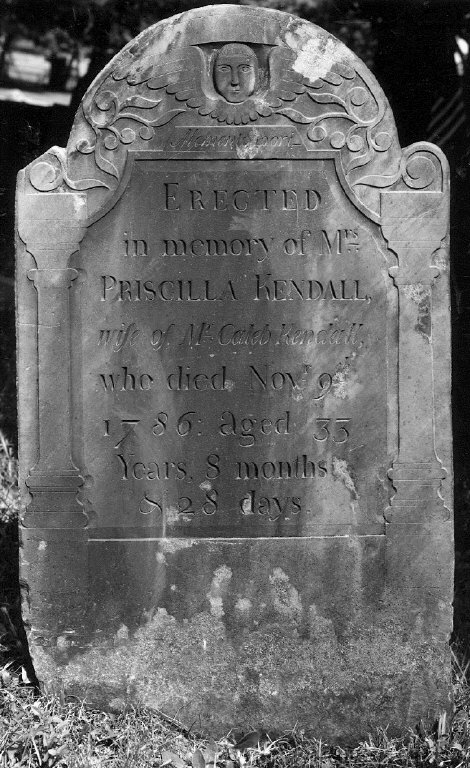 Memento mori.
ERECTED
in memory of Mrs.
PRISCILLA KENDALL,
wife of Mr. Caleb Kendall,
who died Novr. 9th
1786: aged 33
Years, 8 months
& 28 days.